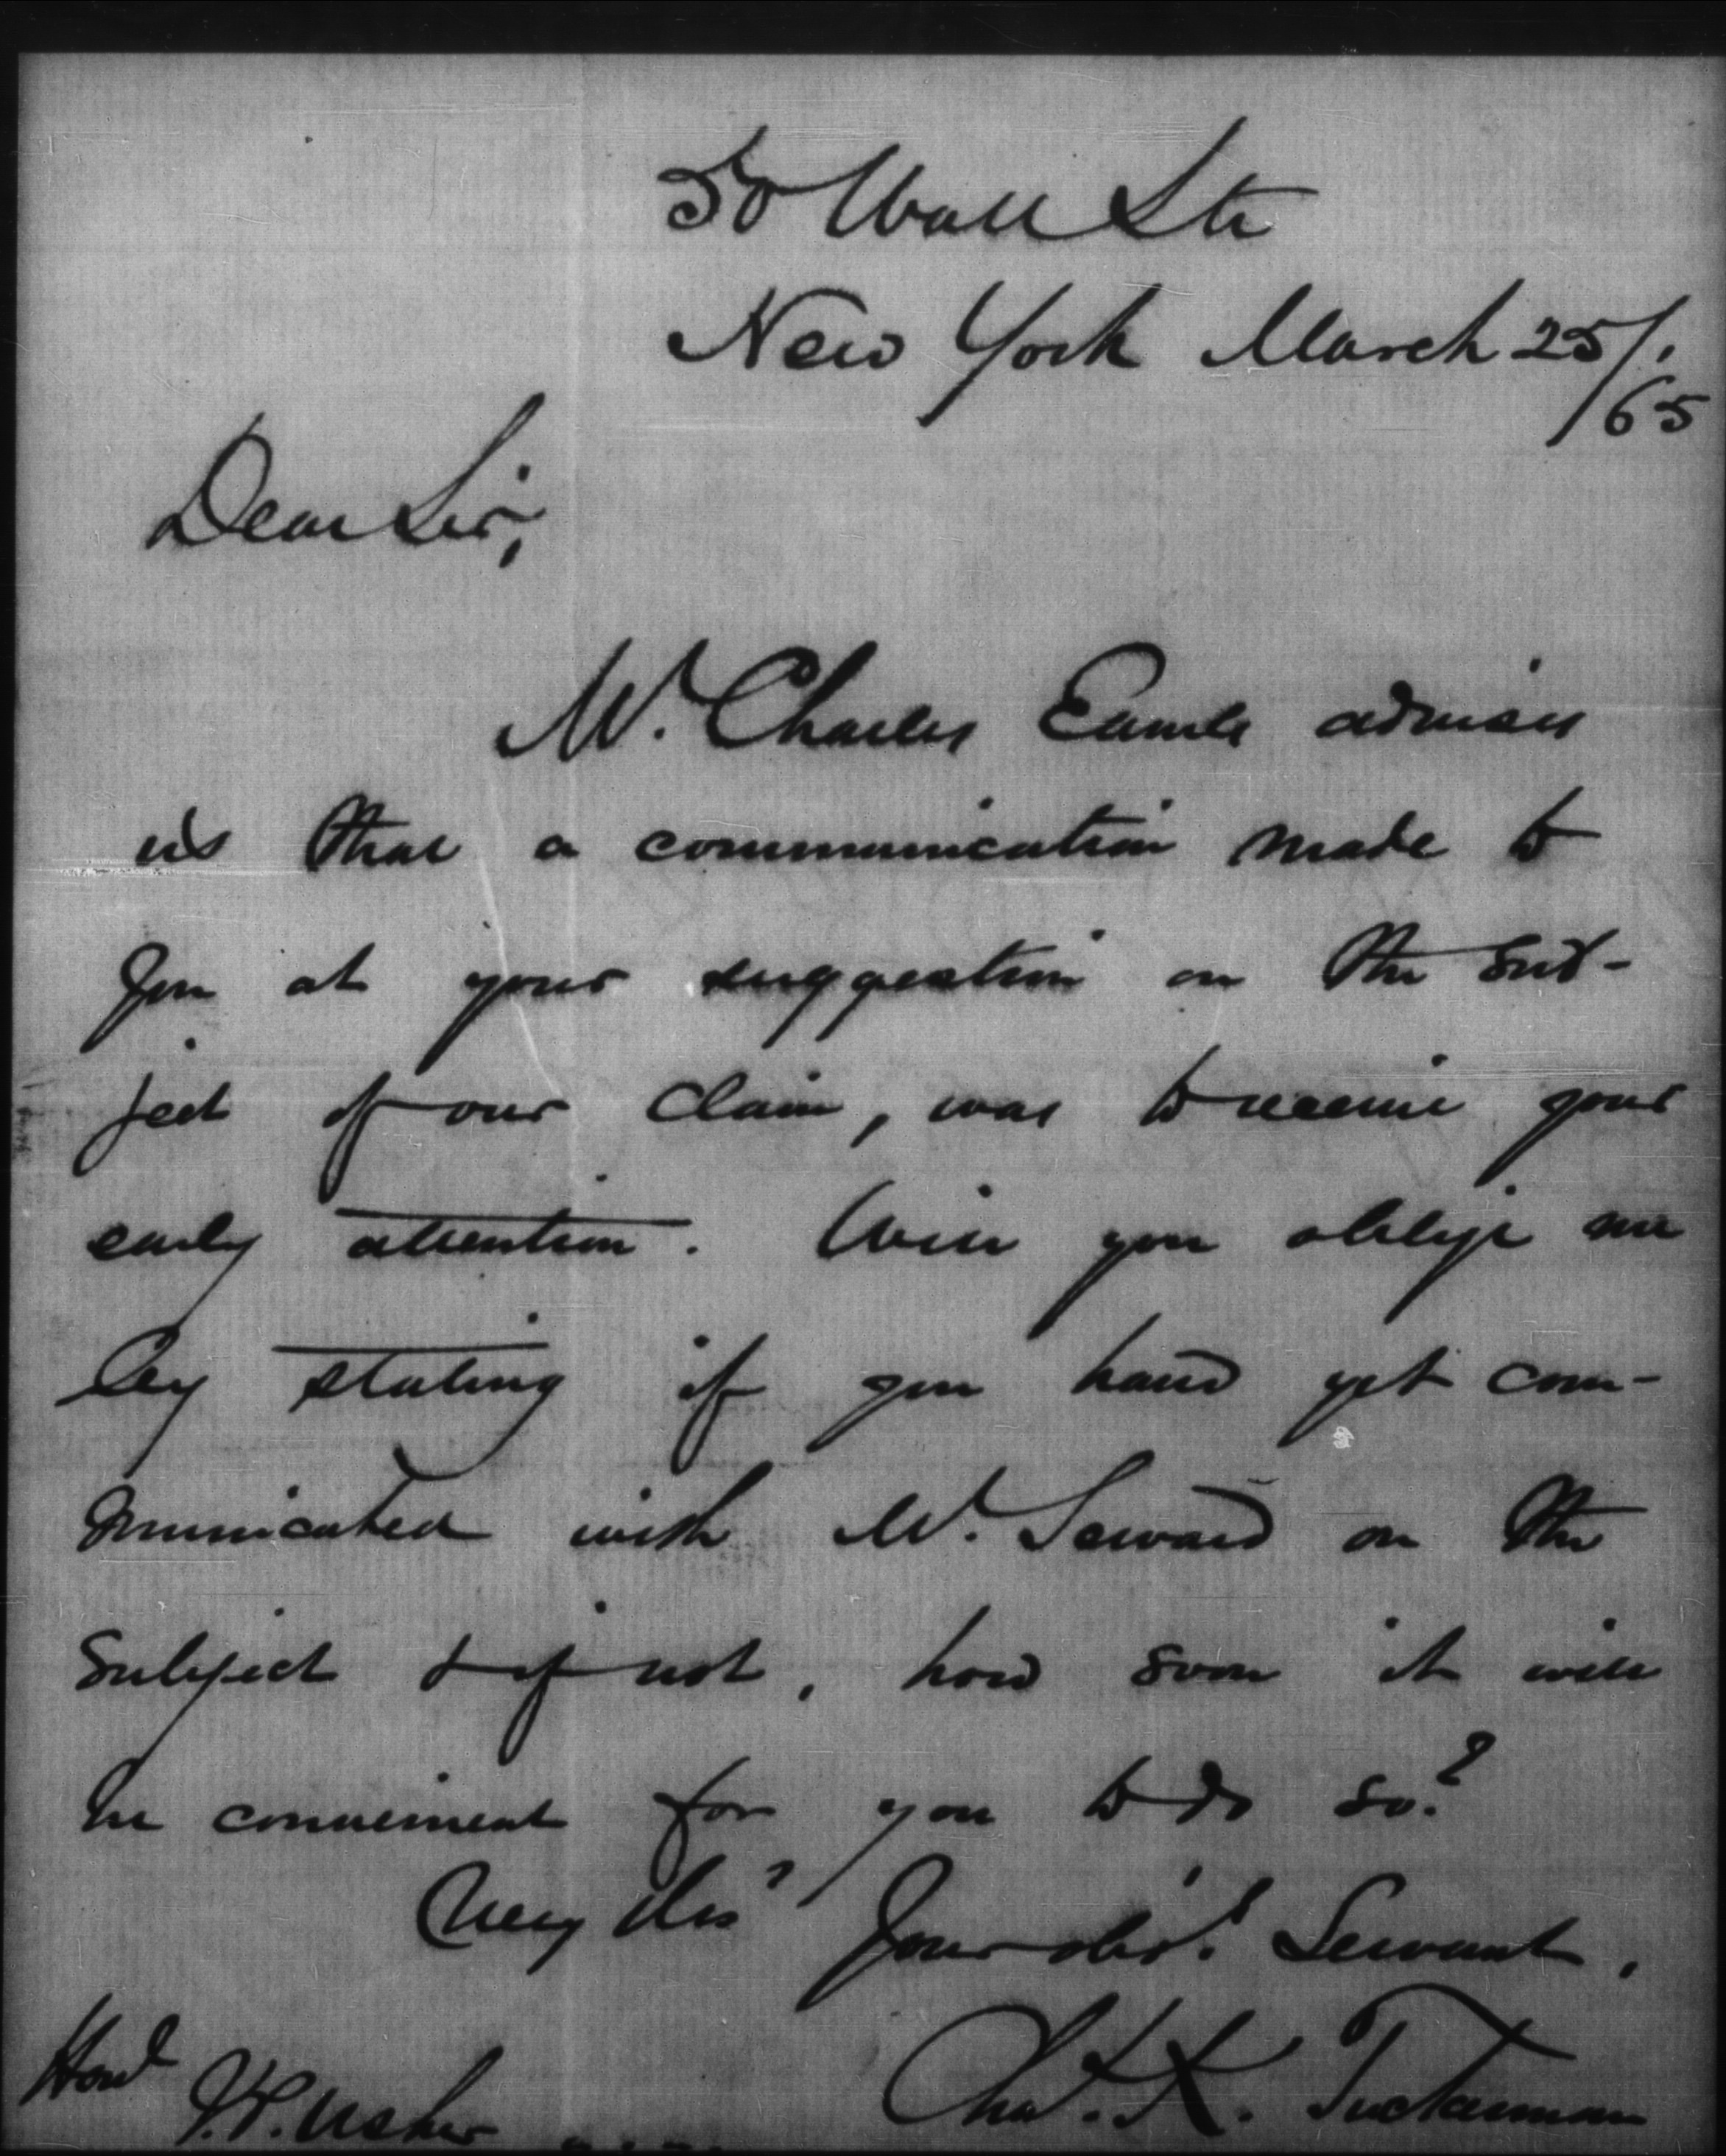 50 Wall Str
New York March 25/.
/65
Dear Sir,
Mr. Charles Eames advises
us that a communication made to
you at your suggestion on the sub-
ject of our claim, was to receive your
early attention. Will you oblige me
by stating if you have yet com-
municated with Mr. Seward on the
subject & if not, how soon it will
be convenient for you to do so?
Very
Your obt. Servant,
Chas. K. Tuckerman
Honl
J.P. Usher